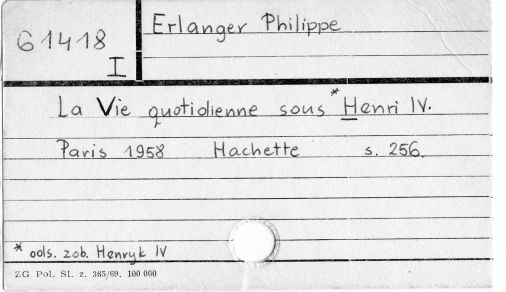 G 1418
I
Erlanger Philippe
La Vie quotidienne sous *Henri IV.
Paris 1958 Hachette s. 256.
* ods. zob. Henryk IV
ZG Pol. Sl. z. 365/69. 100 000